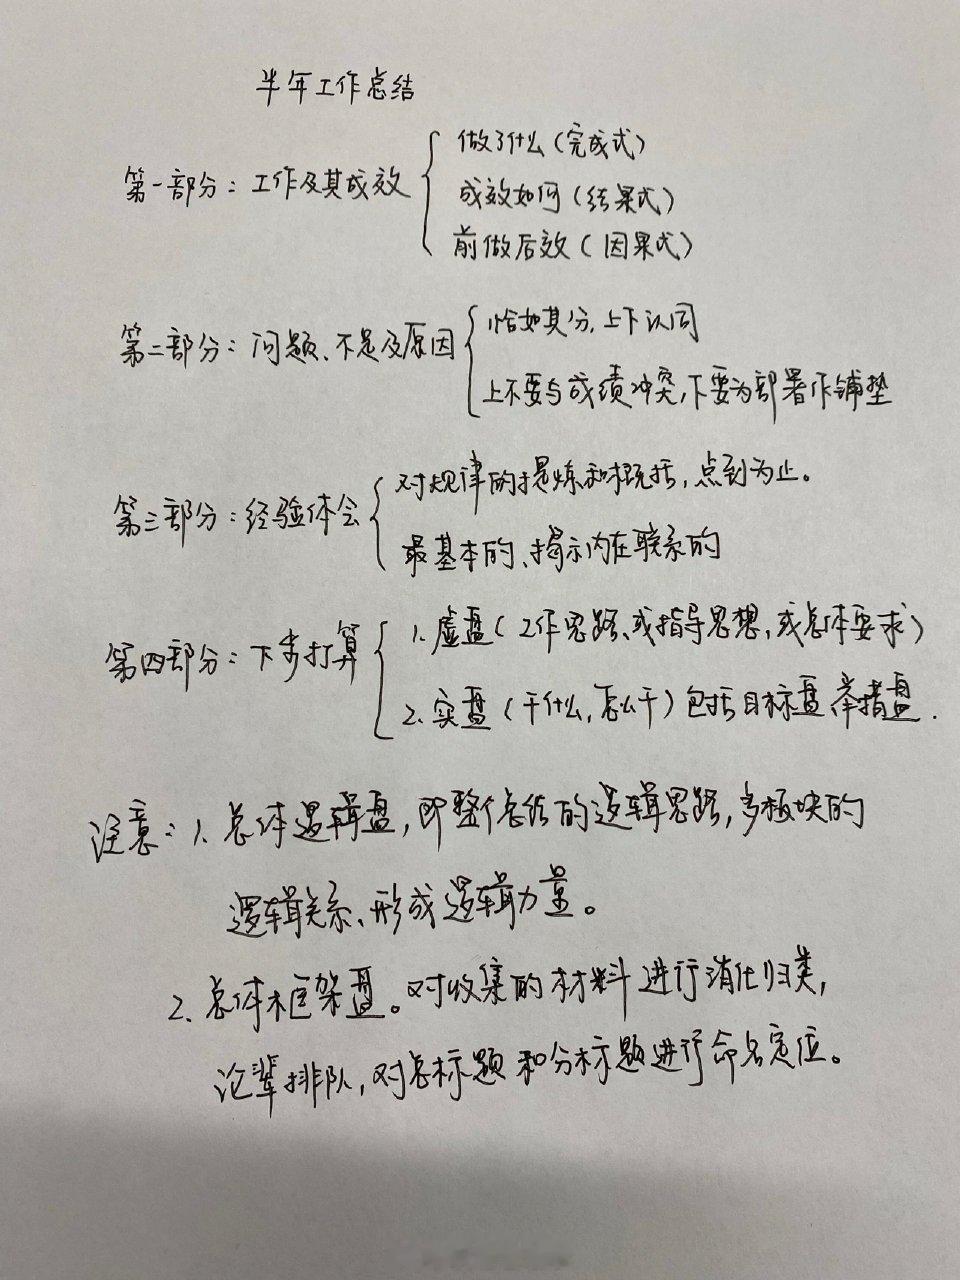 半年工作总结
做了什么(完成式)
第一部分：工作及其成效
成效如何(结果式)
前做后效(因果式)
恰如其分,上下认同
第二部分：问题、不足及原因
上不要与成绩冲突,下要为部署作铺垫
对规律的提炼和概括,点到为止。
第三部分：经验体会
最基本的、揭示内在联系的
1.虚盘(工作思路、或指导思想,或总体要求)
第四部分：下步打算
2.实盘(干什么,怎么干)包括目标盘、举措盘.
注意：1.总体逻辑盘,即整个总结的逻辑思路,多板块的
逻辑关系、形成逻辑力量。
2.总体框架盘。对收集的材料进行消化归类,
论辈排队,对总标题和分标题进行命名定位。